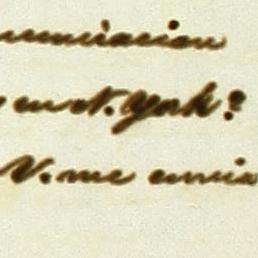 nunciacion
en N. York?
V. me envia